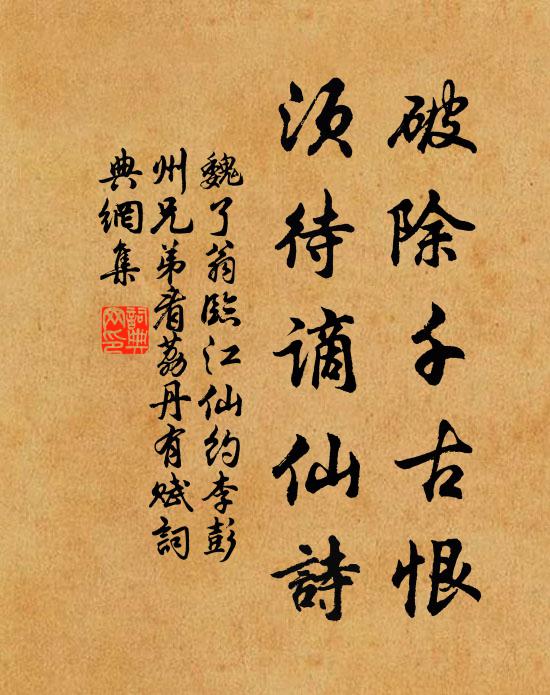 破除千古恨
須待謫仙詩
魏了翁臨江仙約李彭
州兄弟看荔丹有賦詞
典網集
詞典網印